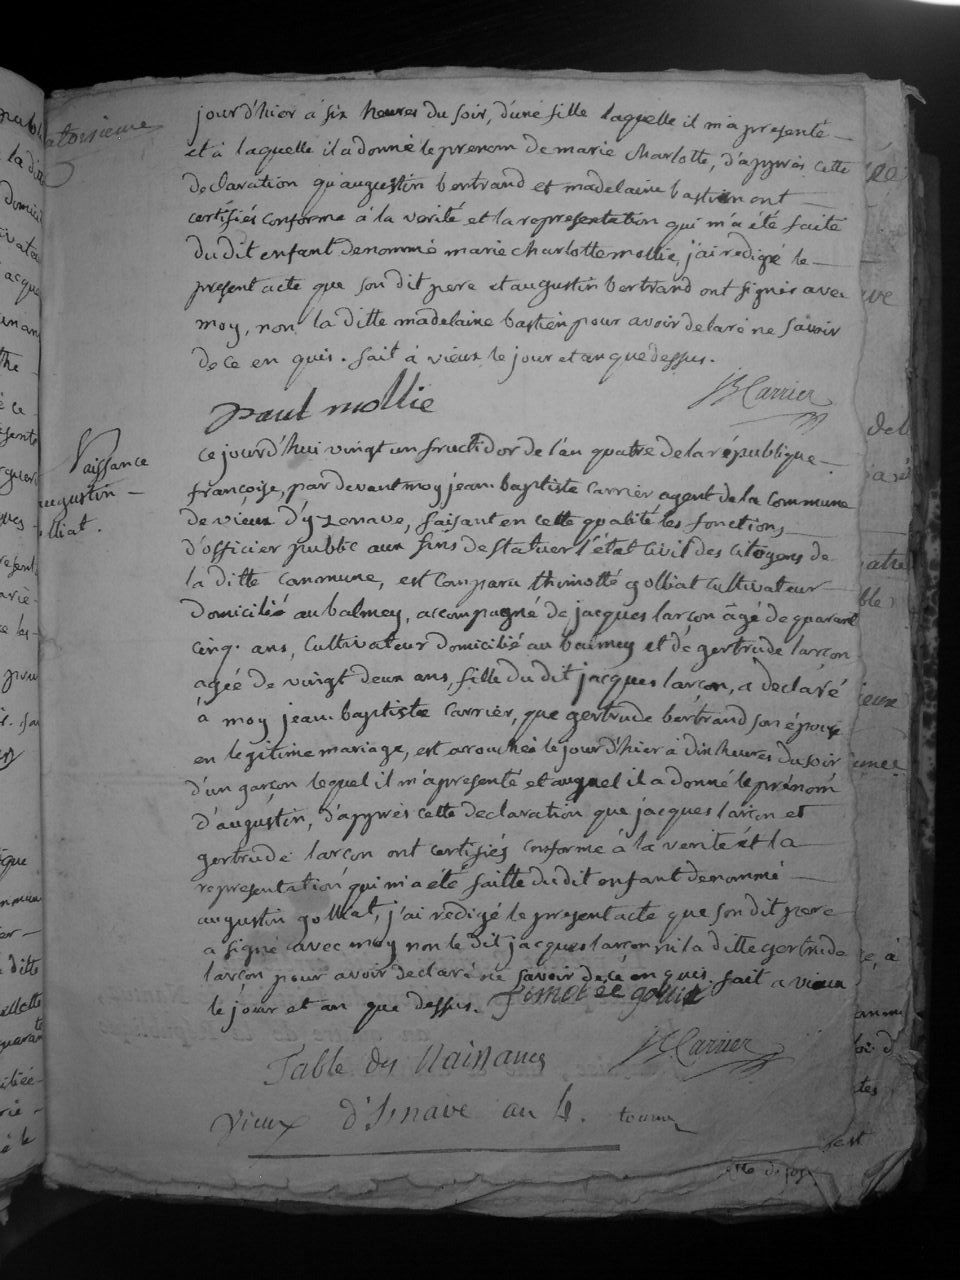 jour d'hier à six heures du soir, d'une fille laquelle il m'a presenté
et à laquelle il a donné le prenom de marie charlotte, d'apprès cette
declaration qu'augustin bertrand et madelaine bastien ont
certifiés conforme à la verité et la representation qui m'a été faite
du dit enfant denommé marie charlotte mollie, j'ai redigé le
present acte que son dit pere et augustin bertrand ont signés avec
moy, non la ditte madelaine bastien pour avoir delaré ne savoir
de ce en quis. fait à vieux le jour et an que dessus.
JB Carrier
paul mollie
Naissance
augustin
golliat.
ce jourd'hui vingt un fructidor de l'an quatre de la république
françoise, par devant moy jean baptiste carrier agent de la commune
de vieux d'yzenave, faisant en cette qualité les fonctions
d'officier public aux fins de statuer l'état civil des citoyens de
la ditte commune, est comparu thimotté golliat cultivateur
domicilié au balmey, acompagné de jacques larçon âgé de quarant
cinq ans, cultivateur domicilié au balmey et de gertrude larçon
agée de vingt deux ans, fille du dit jacques larçon, a declaré
à moy jean baptiste carrier, que gertrude bertrand son épouse
en legitime mariage, est acouchée le jour d'hier à dix heures du soir
d'un garçon lequel il m'a presenté et auquel il a donné le prénom
d'augustin, d'apprès cette declaration que jacques larçon et
gertrude larçon ont certifiés conforme à la verité et la
representation qui m'a été faitte du dit enfant denommé
augustin golliat, j'ai redigé le present acte que son dit pere
a signé avec moy non le dit jacques larçon ni la ditte gertrude
larçon pour avoir declaré ne savoir de ce en quis. fait a vieux
le jour et an que dessus. timotée golliat
JB Carrier
Table des Naissances
Vieux d'Isnave an 4.